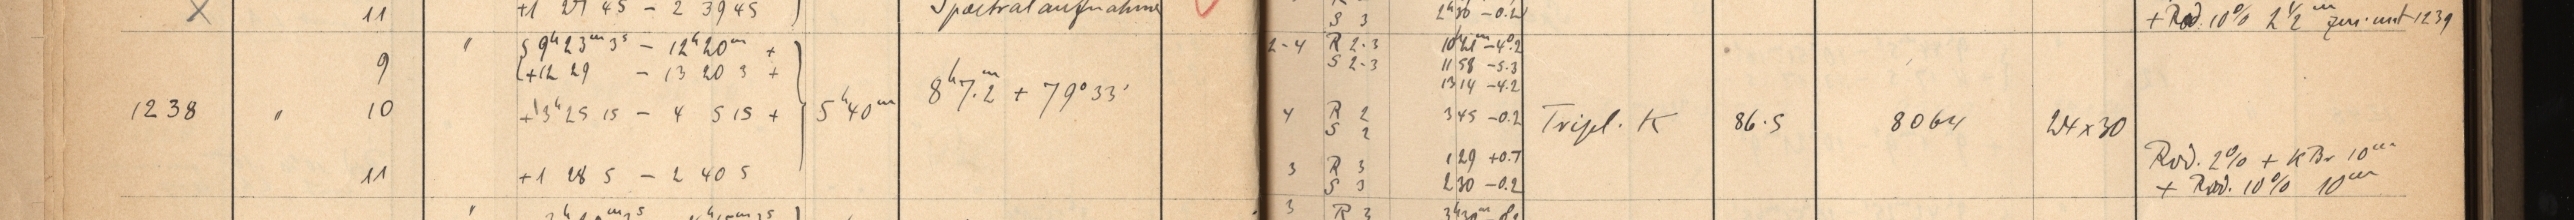 11 +1 27 45 - 2 39 45 ) Spectralaufnahme S 3 2 30 -0.2 + Rod. 10% 2 1/2 m 1239
" 9h 23m 3s - 12h 20m + 2-4 R 2-3 10h 21m -4°.2
9 +12 29 - 13 20 3 + S 2-3 11 58 -5.3
8h 7.m2 + 79° 33' 13 14 -4.2
1238 " 10 +13h 25 15 - 4 5 15 + 5h 40m 4 R 2 3 45 -0.2 Tripl. K 86.5 8064 24x30
S 2
3 R 3 1 29 +0.7 Rod. 2% + KBr 10m
11 +1 28 5 - 2 40 5 S 3 2 30 -0.2 + Rod. 10% 10m
" 3 R 3